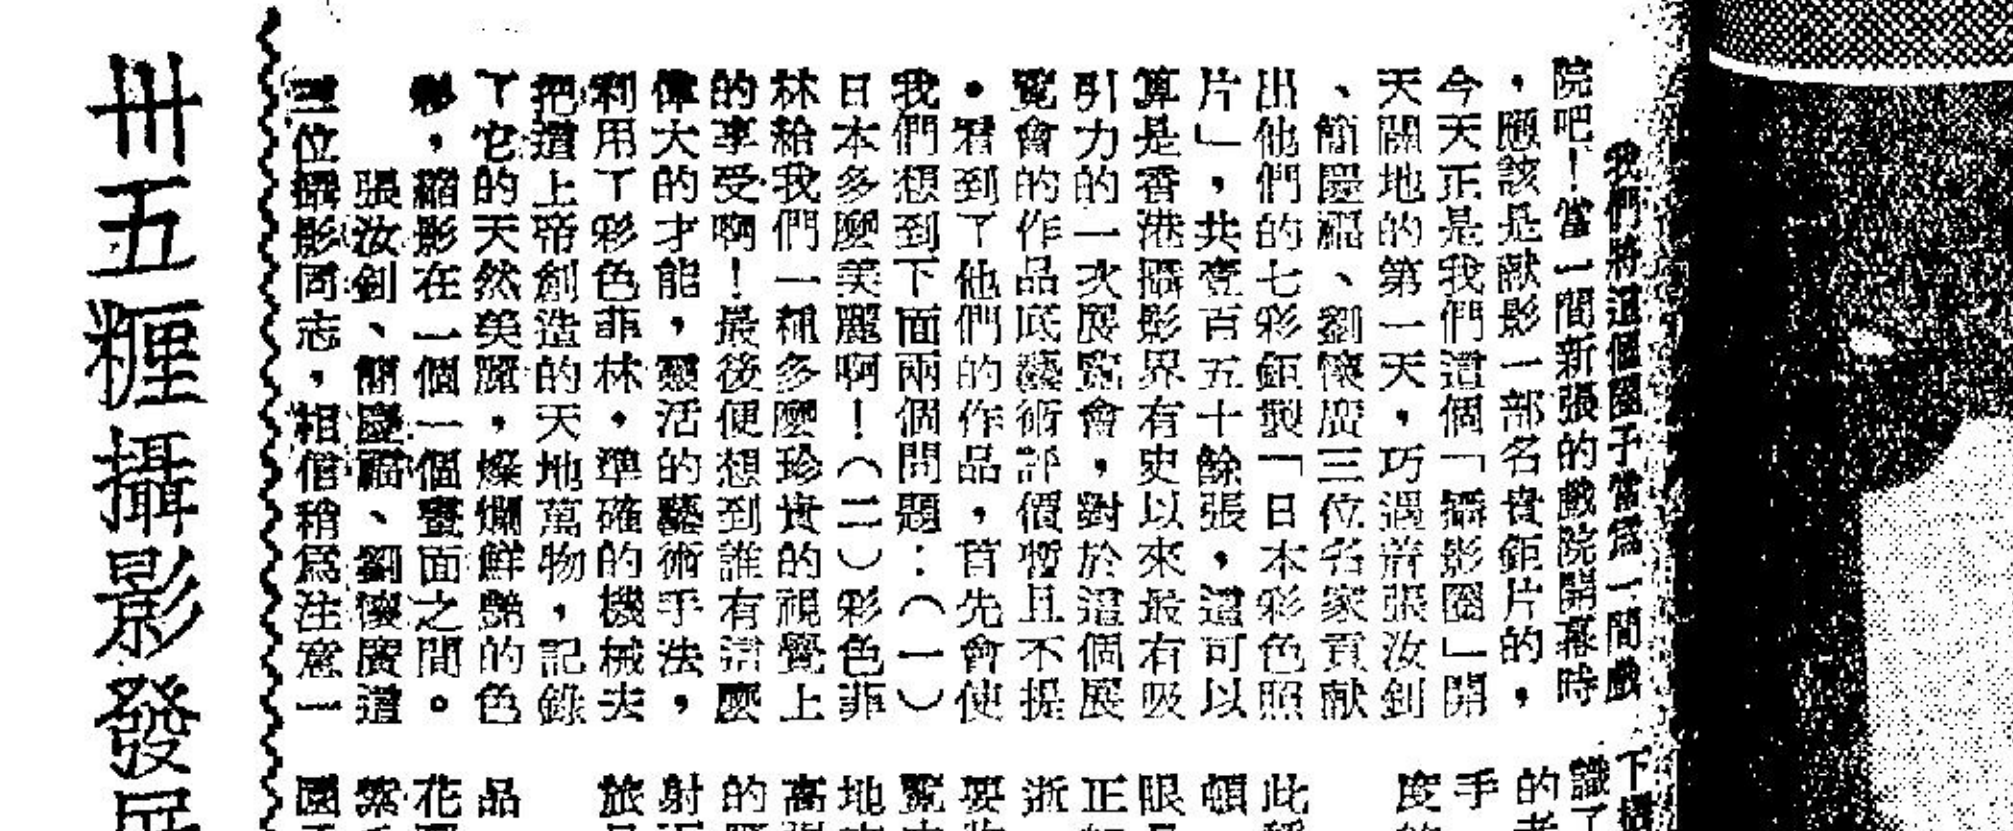 我們將這個圈子當爲一間戲
院吧！當一間新張的戲院開幕時
，應該是献影一部名貴鉅片的，
今天正是我們這個「攝影圈」開
天闢地的第一天，巧遇着張汝釗
、簡慶福、劉懷廣三位名家貢献
出他們的七彩鉅製「日本彩色照
片」，共壹百五十餘張，這可以
算是香港攝影界有史以來最有吸
引力的一次展覽會，對於這個展
覽會的作品底藝術評價暫且不提
。看到了他們的作品，首先會使
我們想到下面兩個問題：（一）
日本多麽美麗啊！（二）彩色菲
林給我們一種多麽珍貴的視覺上
的享受啊！最後便想到誰有這麽
偉大的才能，靈活的藝術手法，
利用了彩色菲林。準確的機械去
把這上帝創造的天地萬物，記錄
了它的天然美麗，燦爛鮮艷的色
彩，縮影在一個一個畫面之間。
張汝釗、簡慶福、劉懷廣這
三位攝影同志，相信稍爲注意一
下
識了
的
手
度
此
頓
眼
正
浙
要
覽
地
高
的
射
旅
品
花
紫
國
卅五糎攝影發展